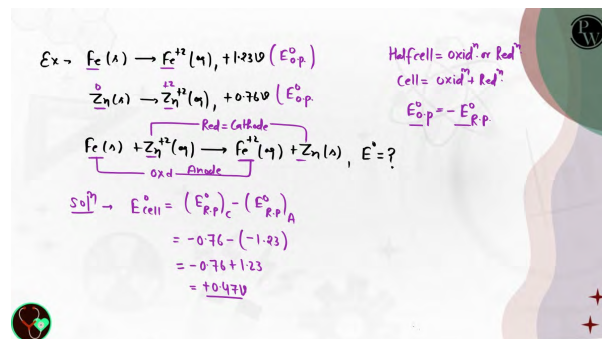 Ex → Fe(s) → Fe⁺²(aq), +1.23V (E°o.p.)
Zn(s) → Zn⁺²(aq), +0.76V (E°o.p.
0 +2
Red = Cathode
Fe(s) + Zn⁺²(aq) → Fe⁺²(aq) + Zn(s), E° = ?
oxd Anode
solⁿ → E°cell = (E°R.P)C - (E°R.P)A
= -0.76 - (-1.23)
= -0.76 + 1.23
= +0.47V
Halfcell = oxidⁿ or Redⁿ
Cell = oxidⁿ + Redⁿ
E°o.p = - E°R.P.
PW